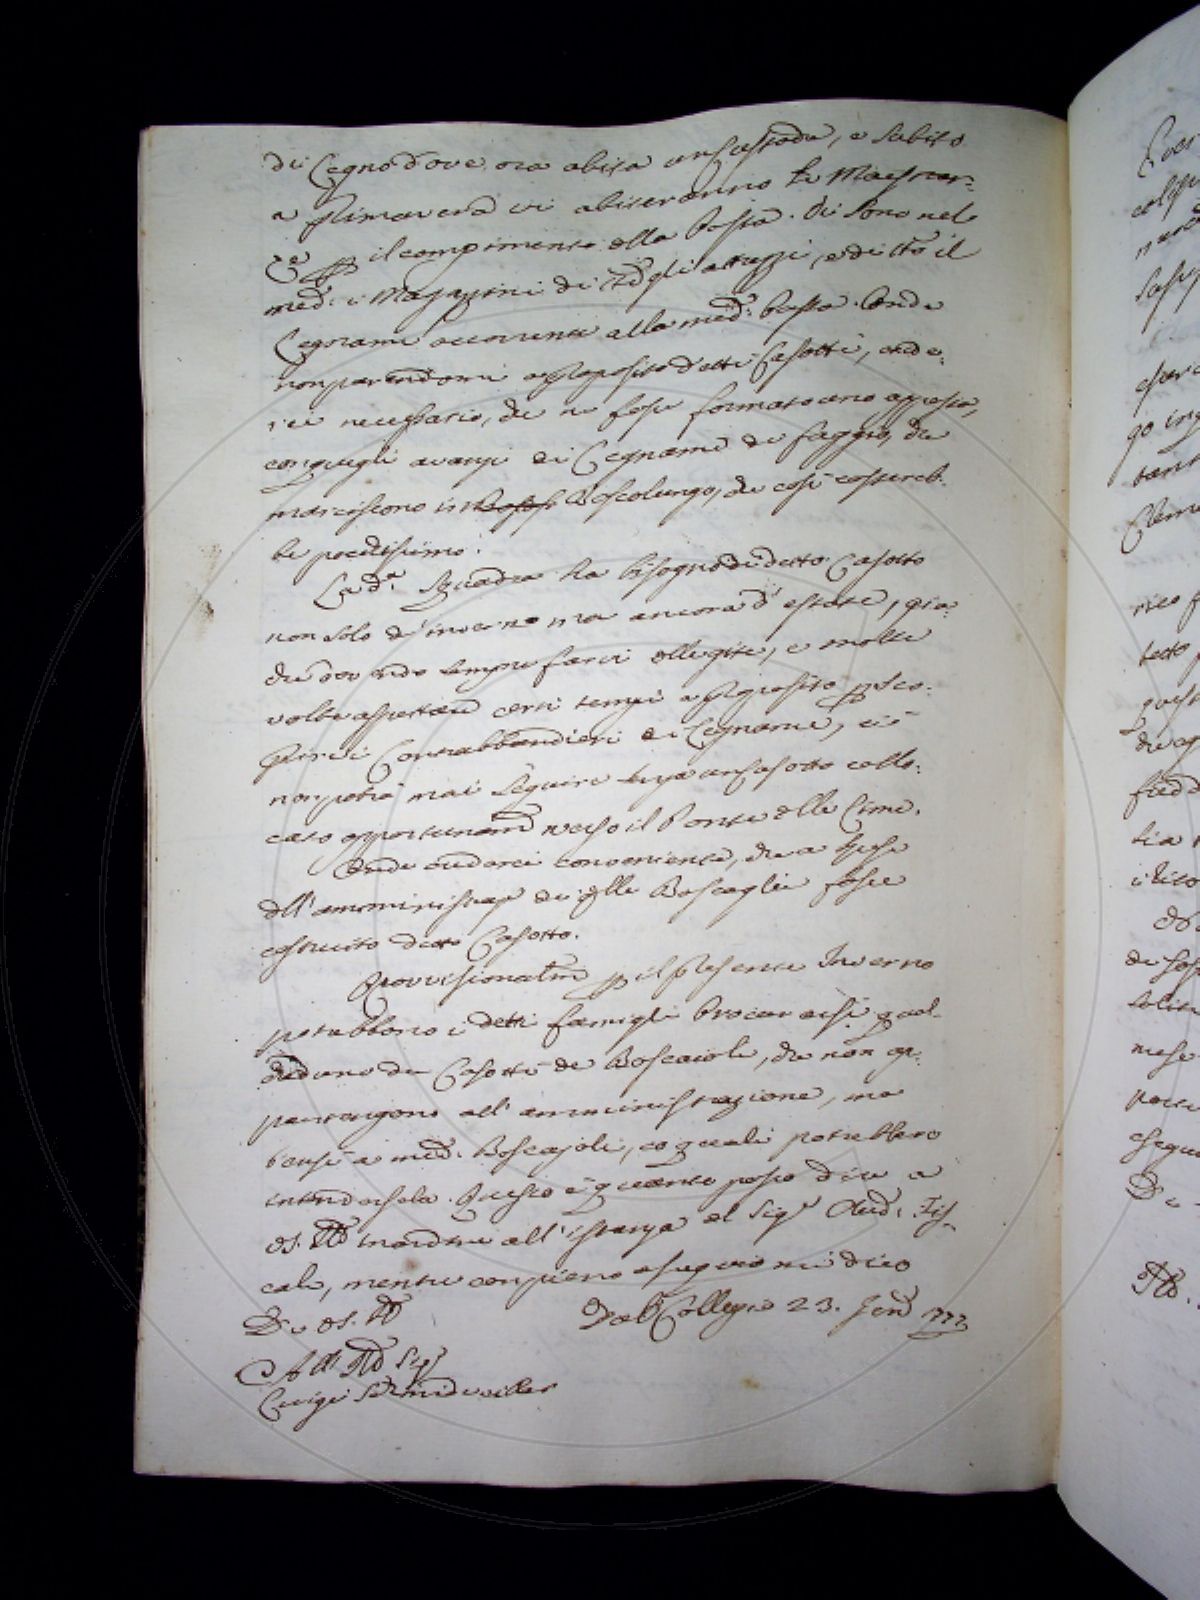 di Legno dove ora abita un Custode, e subito
a Primavera vi abiteranno le Maestran:
ze p il compimento della Posta. Vi sono nel
med.º i Magazzini di tt.i gli attrezzi, e di tt.o il
Legname occorrente alla med.ª Posta. Onde
non parendomi a proposito detti Casotti, crede:
rei necessario, che ne fosse formato uno apposta,
con quegli avanzi di Legname di faggio, che
marciscono in Boscolungo, che così costereb:
be pochissimo.
La d.ª Squadra ha bisogno di detto Casotto
non solo d'inverno ma ancora d'estate, gia:
che dovendo sempre farvi delle gite, e molte
volte aspettare certi tempi a proposito p isco:
prire i Contrabbandieri di Legname, ciò
non potrà mai seguire senza un Casotto collo:
cato opportunam.e verso il Ponte delle Lime.
Onde crederei conveniente, che a spese
dell'amministraz.e di q.lle Boscaglie fosse
costruito detto Casotto.
Provvisionalm.e p il presente Inverno
potrebbero i detti famigli procurarsi qual:
cheduno dei Casotti de Boscaioli, che non ap:
partengono all'amministrazione, ma
bensì a med.i Boscajoli, co quali potrebbero
intendersela. Questo è quanto posso dire a
VS. Ill.ma inordine all'istanza del Sig.r Aud.e Fis:
cale, mentre con pieno ossequio mi dico
Di VS. Ill.ma Dal Collegio 23. Gen.o 1777
Luigi